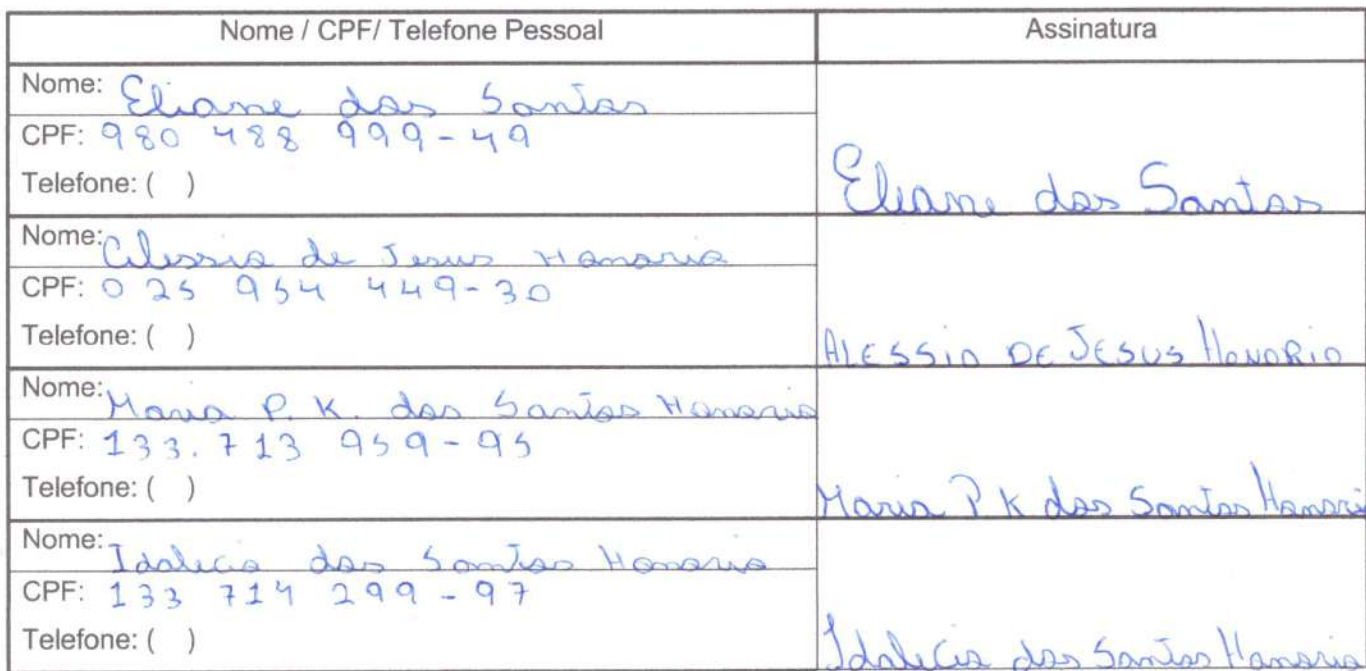 Nome / CPF/ Telefone Pessoal
Assinatura
Nome: Eliane dos Santos
CPF: 980 488 999-49
Telefone: ( )
Eliane dos Santos
Nome: Alessio de Jesus Honorio
CPF: 025 954 449-30
Telefone: ( )
ALESSIO DE JESUS HONORIO
Nome: Maria P. K. dos Santos Honorio
CPF: 133.713 959-95
Telefone: ( )
Maria P K dos Santos Honori
Nome: Idalecio dos Santos Honorio
CPF: 133 714 299-97
Telefone: ( )
Idalecio dos Santos Honorio